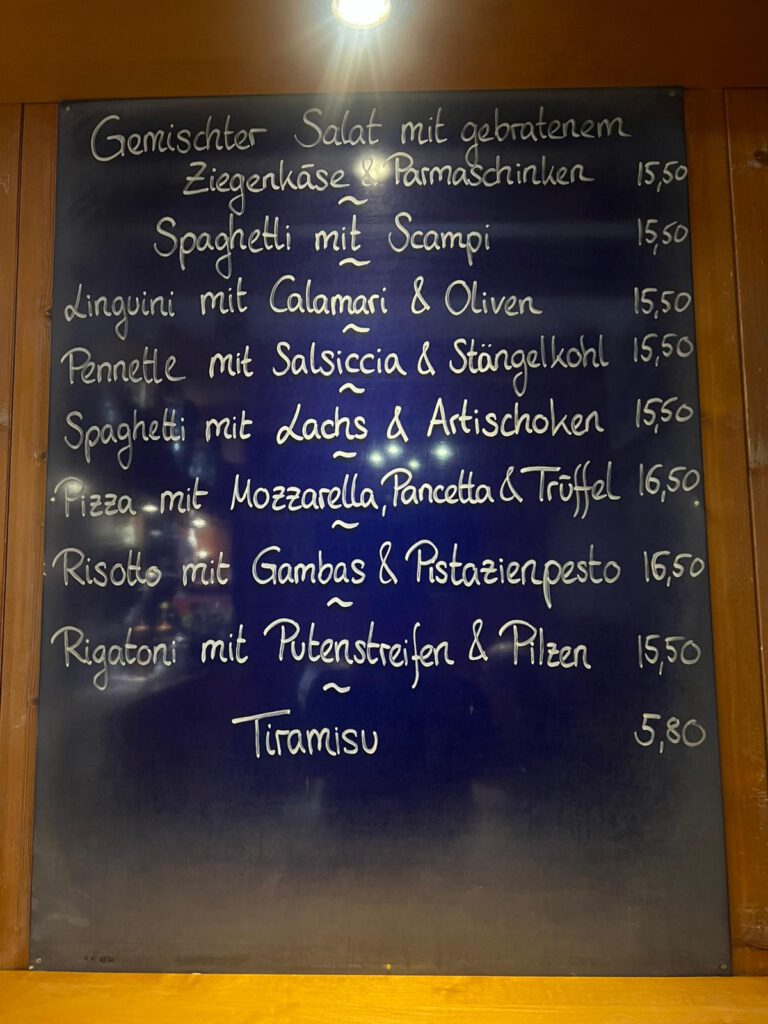 Gemischter Salat mit gebratenem
Ziegenkäse & Parmaschinken 15,50
~
Spaghetti mit Scampi 15,50
~
Linguini mit Calamari & Oliven 15,50
~
Pennette mit Salsiccia & Stängelkohl 15,50
~
Spaghetti mit Lachs & Artischoken 15,50
~
Pizza mit Mozzarella, Pancetta & Trüffel 16,50
~
Risotto mit Gambas & Pistazienpesto 16,50
~
Rigatoni mit Putenstreifen & Pilzen 15,50
~
Tiramisu 5,80